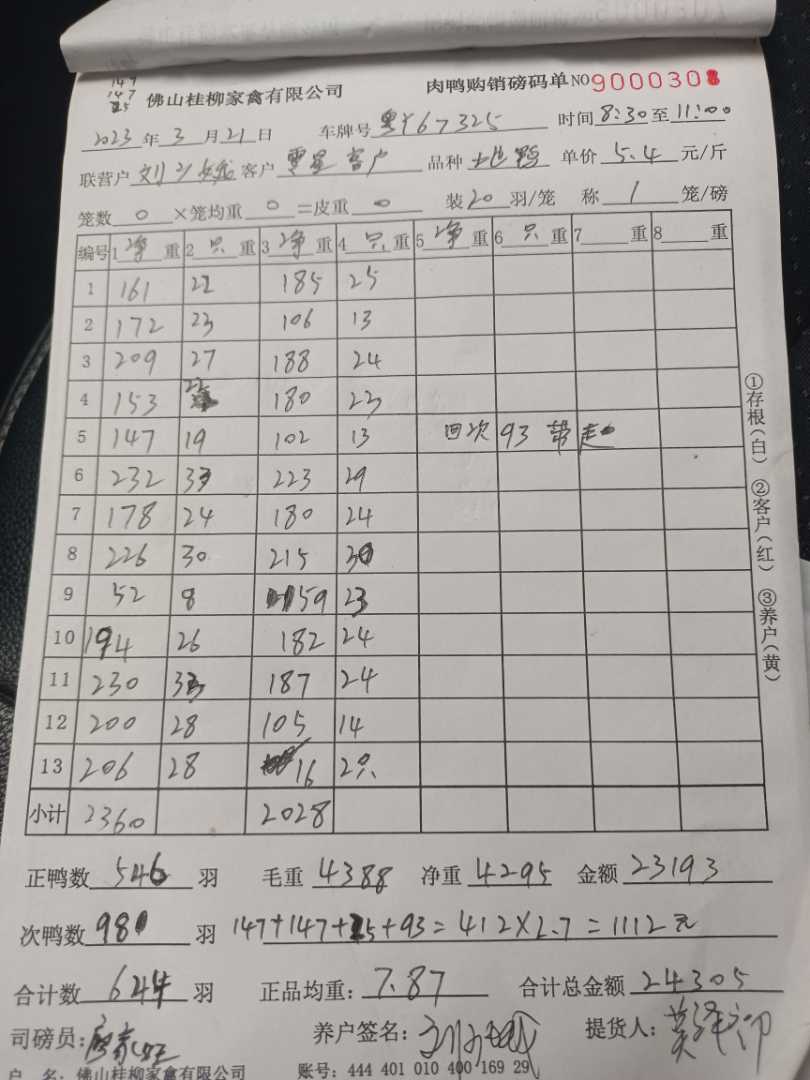 147
147
25
佛山桂柳家禽有限公司 肉鸭购销磅码单 NO9000308
2023年3月21日 车牌号 67325 时间8:30至11:00
联营户 刘 客户 零星客户 品种 单价5.4元/斤
笼数0×笼均重0=皮重0 装20羽/笼 称1笼/磅
编号 1净重 2只重 3净重 4只重 5净重 6只重 7重 8重
1 161 22 185 25
2 172 23 106 13
3 209 27 188 24
4 153 22 180 23
5 147 19 102 13 回次93带走
6 232 33 223 29
7 178 24 180 24
8 226 30 215 30
9 52 8 159 23
10 194 26 182 24
11 230 33 187 24
12 200 28 105 14
13 206 28 16 2只
小计 2360 2028
正鸭数546羽 毛重4388 净重4295 金额23193
次鸭数98羽 147+147+25+93=412×2.7=1112元
合计数644羽 正品均重:7.87 合计总金额24305
司磅员: 养户签名: 提货人:
户 名:佛山桂柳家禽有限公司 账号:444 401 010 400 169 29
①存根(白) ②客户(红) ③养户(黄)